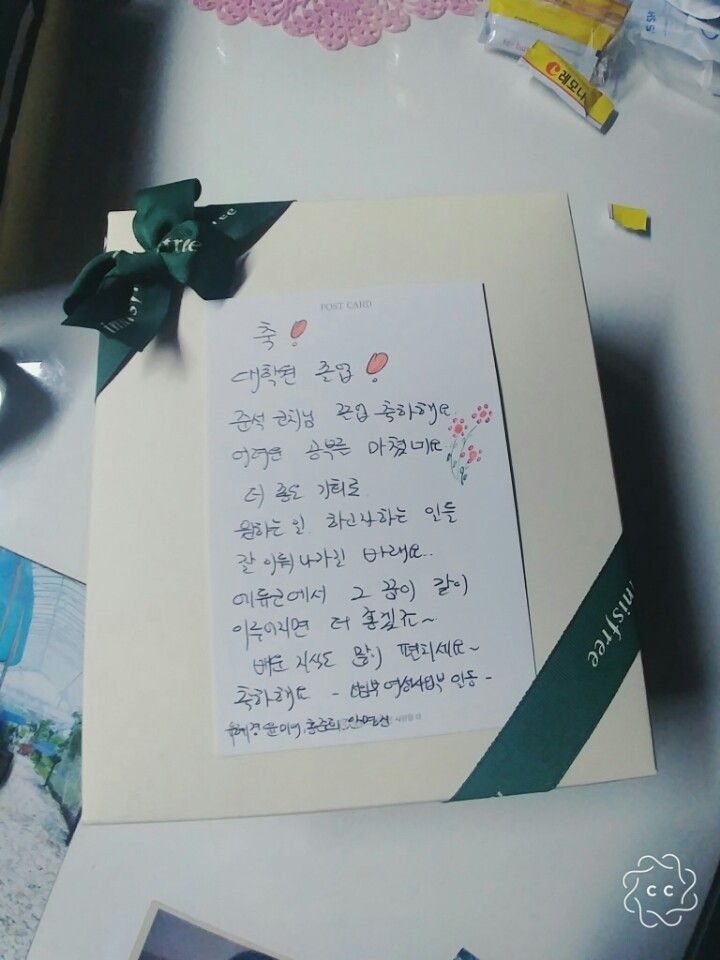 레모나
innisfree
POST CARD
축!
대학원 졸업!
준석 코치님 졸업 축하해요
어려운 공부를 마쳤네요
더 좋은 기회로
원하는 일, 하고자하는 일들
잘 이뤄나가길 바래요..
에듀코에서 그 꿈이 같이
이루어지면 더 좋겠죠~
배운 지식도 많이 펼치세요~
축하해요 - 사업부 일동 -
윤미
innisfree
CC